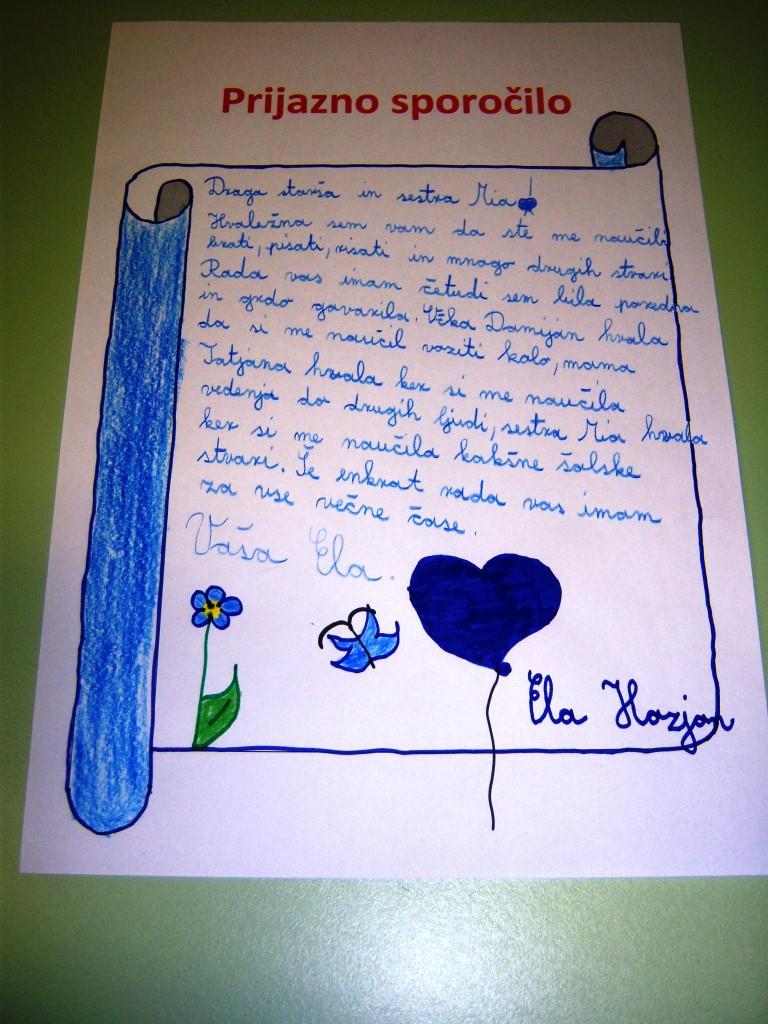 Prijazno sporočilo
Draga starša in sestra Mia!
Hvaležna sem vam da ste me naučili
brati, pisati, risati in mnogo drugih stvari
Rada vas imam četudi sem bila poredna
in grdo govorila. Očka Damijan hvala
da si me naučil voziti kolo, mama
Tatjana hvala ker si me naučila
vedenja do drugih ljudi, sestra Mia hvala
ker si me naučila kakšne šolske
stvari. Še enkrat rada vas imam
za vse večne čase.
Vaša Ela.
Ela Horjan